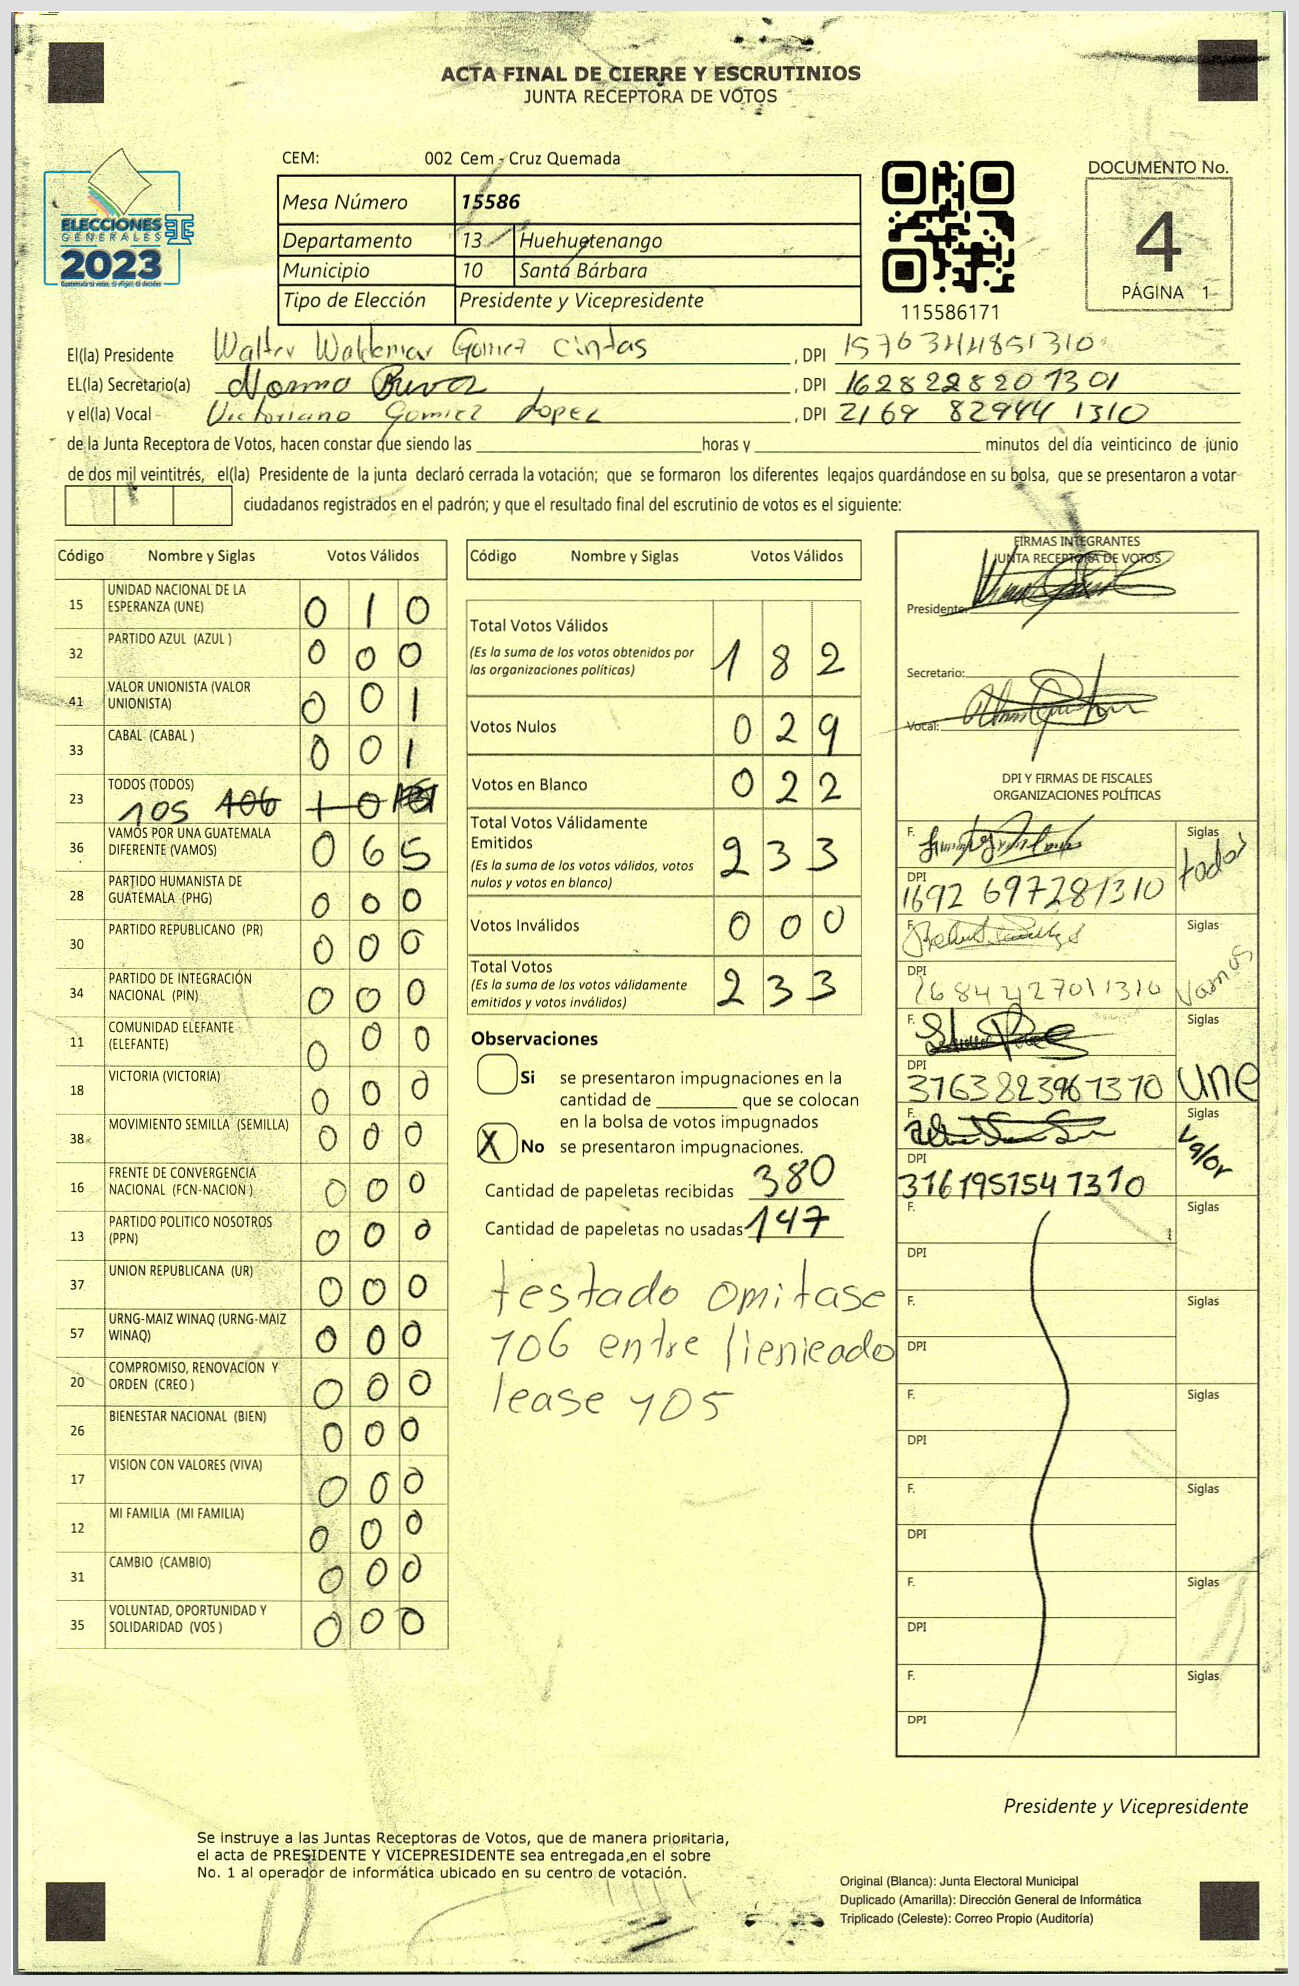 ACTA FINAL DE CIERRE Y ESCRUTINIOS
JUNTA RECEPTORA DE VOTOS
CEM: 002 Cem - Cruz Quemada
Mesa Número 15586
Departamento 13 Huehuetenango
Municipio 10 Santa Bárbara
Tipo de Elección Presidente y Vicepresidente
ELECCIONES
GENERALES
2023
115586171
DOCUMENTO No.
4
PÁGINA 1
El(la) Presidente Walter Waldemar Gomez Cintas, DPI
EL(la) Secretario(a) Norma, DPI 1628228201301
y el(la) Vocal Victoriano Gomez Lopez, DPI 2169 82944 1310
de la Junta Receptora de Votos, hacen constar que siendo las horas y minutos del día veinticinco de junio
de dos mil veintitrés, el(la) Presidente de la junta declaró cerrada la votación; que se formaron los diferentes legajos quardándose en su bolsa, que se presentaron a votar
ciudadanos registrados en el padrón; y que el resultado final del escrutinio de votos es el siguiente:
Código Nombre y Siglas Votos Válidos
15 UNIDAD NACIONAL DE LA
ESPERANZA (UNE) 0 1 0
32 PARTIDO AZUL (AZUL ) 0 0 0
41 VALOR UNIONISTA (VALOR
UNIONISTA) 0 0 1
33 CABAL (CABAL ) 0 0 1
23 TODOS (TODOS)
105 106 1 0
36 VAMOS POR UNA GUATEMALA
DIFERENTE (VAMOS) 0 6 5
28 PARTIDO HUMANISTA DE
GUATEMALA (PHG) 0 0 0
30 PARTIDO REPUBLICANO (PR) 0 0 0
34 PARTIDO DE INTEGRACIÓN
NACIONAL (PIN) 0 0 0
11 COMUNIDAD ELEFANTE
(ELEFANTE) 0 0 0
18 VICTORIA (VICTORIA) 0 0 0
38 MOVIMIENTO SEMILLA (SEMILLA) 0 0 0
16 FRENTE DE CONVERGENCIA
NACIONAL (FCN-NACION ) 0 0 0
13 PARTIDO POLITICO NOSOTROS
(PPN) 0 0 0
37 UNION REPUBLICANA (UR) 0 0 0
57 URNG-MAIZ WINAQ (URNG-MAIZ
WINAQ) 0 0 0
20 COMPROMISO, RENOVACION Y
ORDEN (CREO ) 0 0 0
26 BIENESTAR NACIONAL (BIEN) 0 0 0
17 VISION CON VALORES (VIVA) 0 0 0
12 MI FAMILIA (MI FAMILIA) 0 0 0
31 CAMBIO (CAMBIO) 0 0 0
35 VOLUNTAD, OPORTUNIDAD Y
SOLIDARIDAD (VOS ) 0 0 0
Código Nombre y Siglas Votos Válidos
Total Votos Válidos
(Es la suma de los votos obtenidos por
las organizaciones políticas) 1 8 2
Votos Nulos 0 2 9
Votos en Blanco 0 2 2
Total Votos Válidamente
Emitidos
(Es la suma de los votos válidos, votos
nulos y votos en blanco) 2 3 3
Votos Inválidos 0 0 0
Total Votos
(Es la suma de los votos válidamente
emitidos y votos inválidos) 2 3 3
Observaciones
Si se presentaron impugnaciones en la
cantidad de que se colocan
en la bolsa de votos impugnados
X No se presentaron impugnaciones.
Cantidad de papeletas recibidas 380
Cantidad de papeletas no usadas 147
testado omitase
106 entre lienieado
lease 105
FIRMAS INTEGRANTES
JUNTA RECEPTORA DE VOTOS
Presidente:
Secretario:
Vocal:
DPI Y FIRMAS DE FISCALES
ORGANIZACIONES POLÍTICAS
F. Siglas todos
DPI
1692 697281310
F. Siglas vamos
DPI
F. Siglas une
DPI
3763823961310
F. Siglas valor
DPI
3161951541310
F. Siglas
DPI
F. Siglas
DPI
F. Siglas
DPI
F. Siglas
DPI
F. Siglas
DPI
F. Siglas
DPI
Presidente y Vicepresidente
Se instruye a las Juntas Receptoras de Votos, que de manera prioritaria,
el acta de PRESIDENTE Y VICEPRESIDENTE sea entregada,en el sobre
No. 1 al operador de informática ubicado en su centro de votación.
Original (Blanca): Junta Electoral Municipal
Duplicado (Amarilla): Dirección General de Informática
Triplicado (Celeste): Correo Propio (Auditoría)